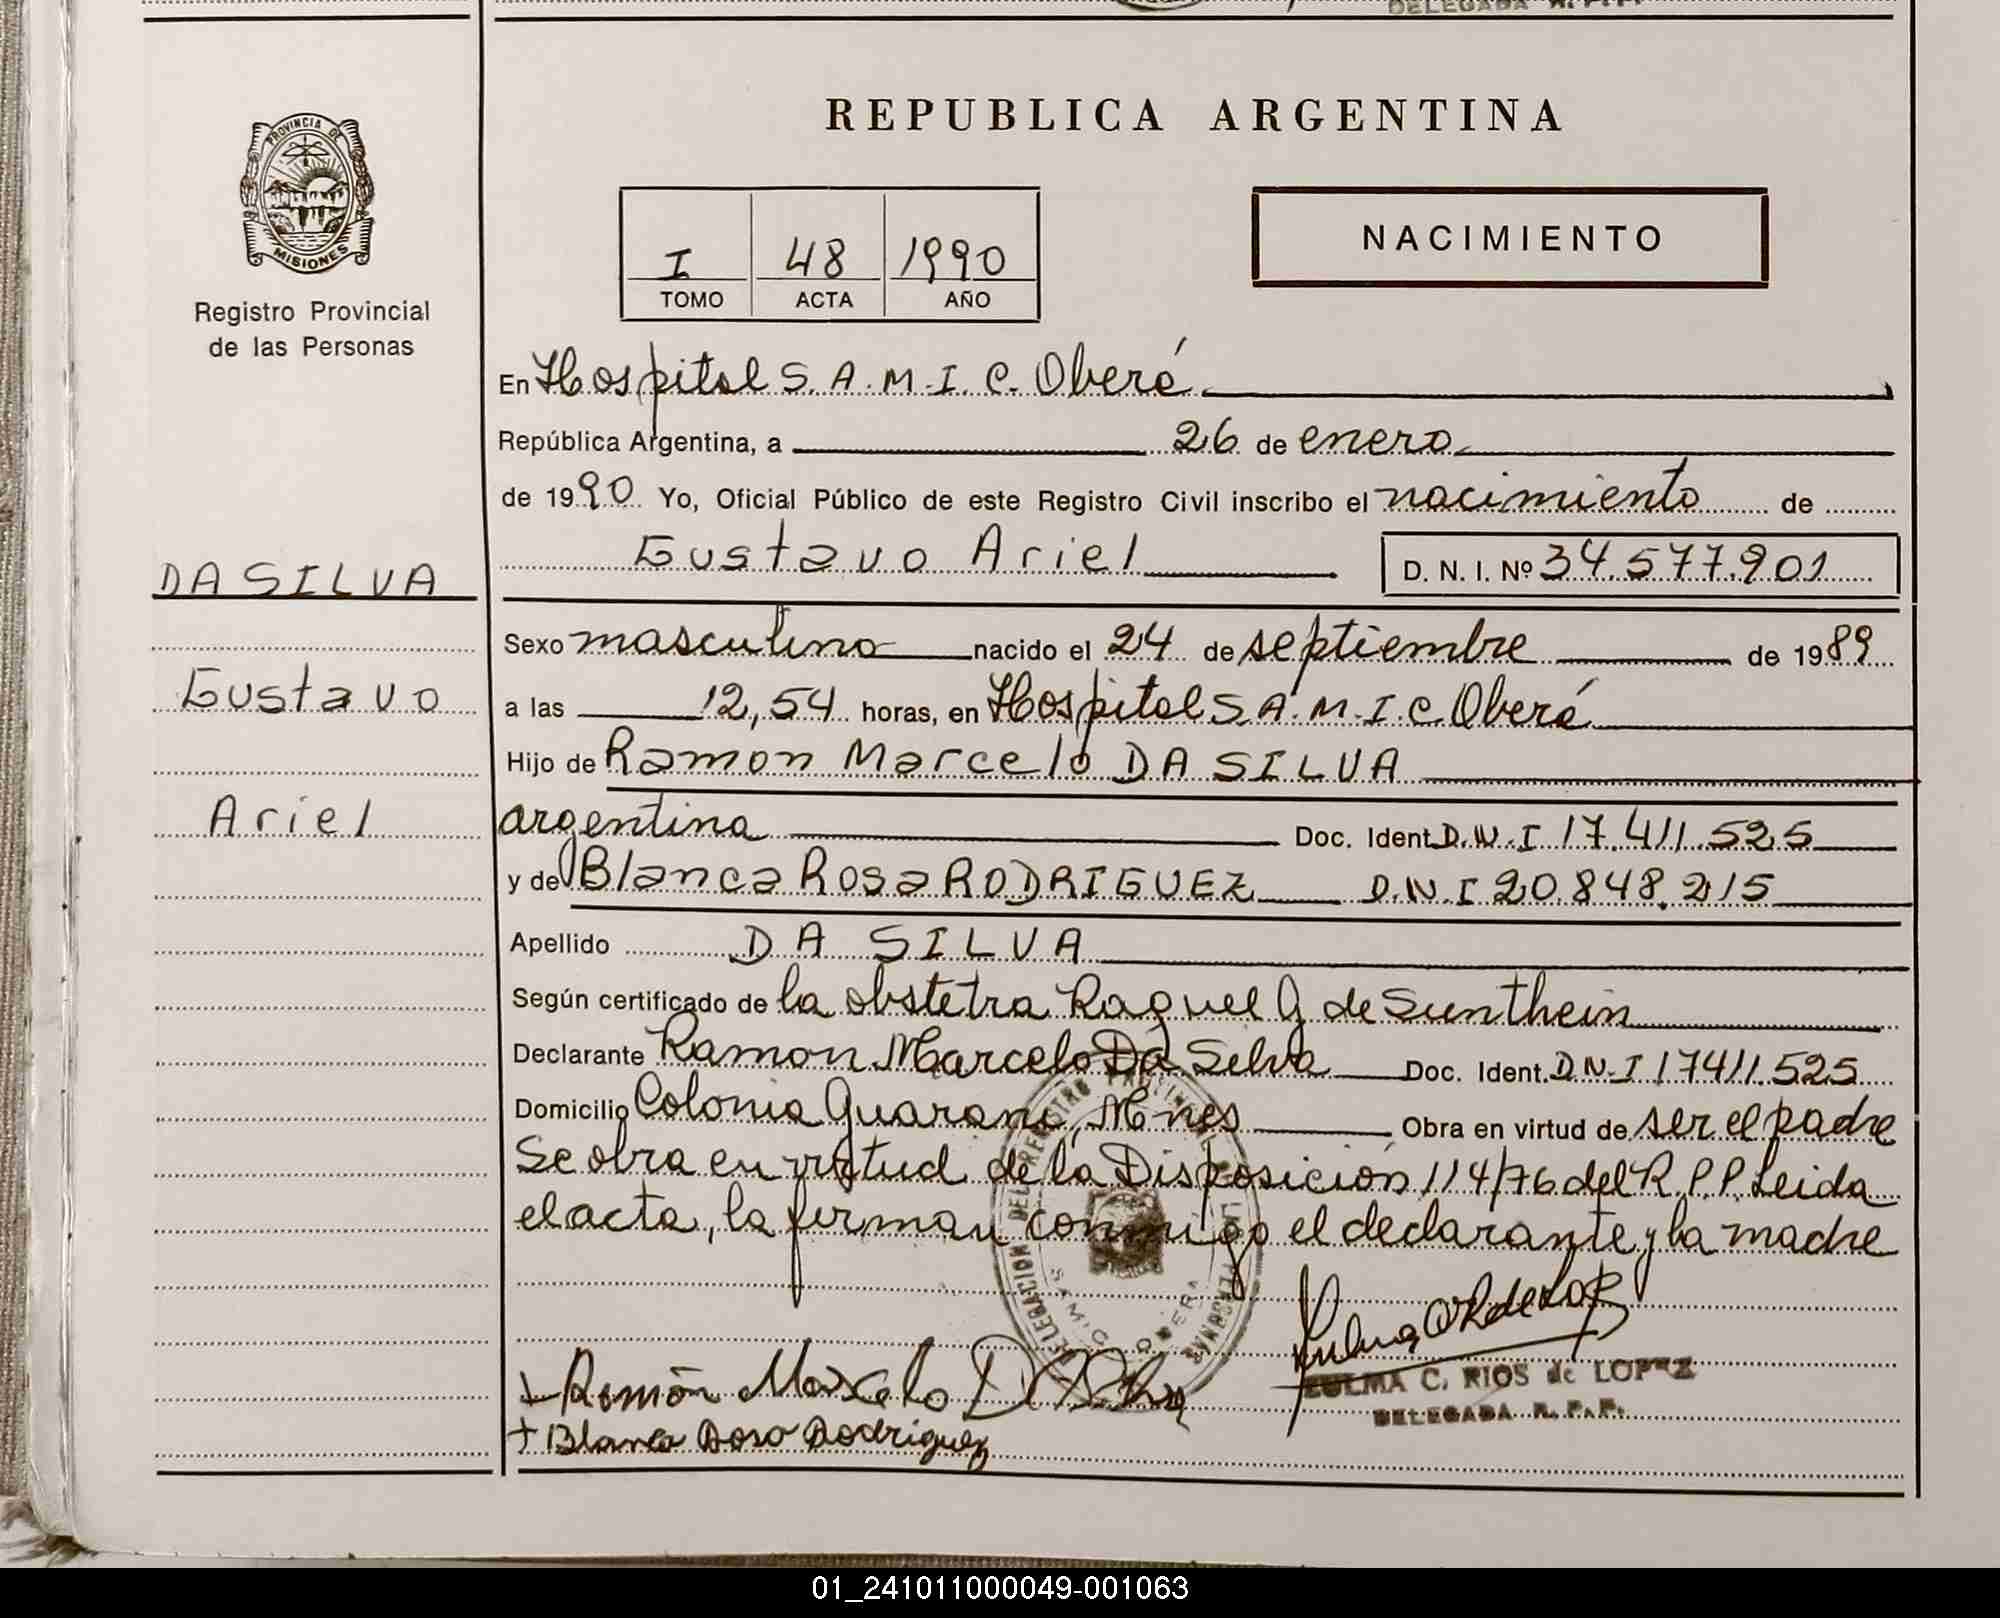 DELEGADA R.P.P.
REPUBLICA ARGENTINA
PROVINCIA DE
MISIONES
Registro Provincial
de las Personas
I 48 1990
TOMO ACTA AÑO
NACIMIENTO
En Hospital S.A.M.I.C. Oberá
República Argentina, a 26 de enero
de 1990 Yo, Oficial Público de este Registro Civil inscribo el nacimiento de
Gustavo Ariel D. N. I. Nº 34.577.901
DA SILVA
Gustavo
Ariel
Sexo masculino nacido el 24 de septiembre de 1989
a las 12,54 horas, en Hospital S.A.M.I.C. Oberá
Hijo de Ramon Marcelo DA SILVA
argentina Doc. Ident. D.N.I 17.411.525
y de Blanca Rosa RODRIGUEZ D.N.I 20.848.215
Apellido DA SILVA
Según certificado de la obstetra Raquel G de Sunthein
Declarante Ramon Marcelo Da Silva Doc. Ident. D.N.I 17411.525
Domicilio Colonia Guarani, Mnes Obra en virtud de ser el padre
Se obra en virtud de la Disposición 114/76 del R.P.P. Leida
el acta, la firman conmigo el declarante y la madre
DELEGACION DEL REGISTRO PROVINCIAL DE LAS PERSONAS
S.A.M.I.C. OBERA
+ Ramón Marcelo Da Silva
+ Blanca Rosa Rodriguez
ZULMA C. RIOS de LOPEZ
DELEGADA R.P.P.
01_241011000049-001063